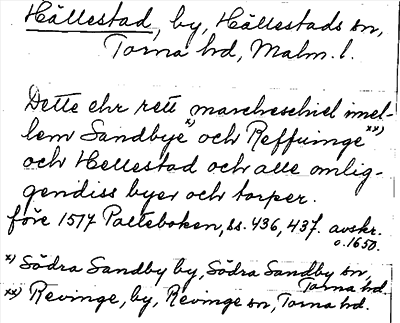 Hällestad, by, Hällestads sn,
Torna hd, Malm. l.
Dette ehr rett marcheschiel imel-
lem Sandbye x) och Reffuinge xx)
och Hellestad och alle omlig-
gendiss byer och torper.
före 1517 Palteboken, ss. 436, 437. avskr.
o. 1650.
x) Södra Sandby by, Södra Sandby sn,
Torna hd
xx) Revinge, by, Revinge sn, Torna hd.